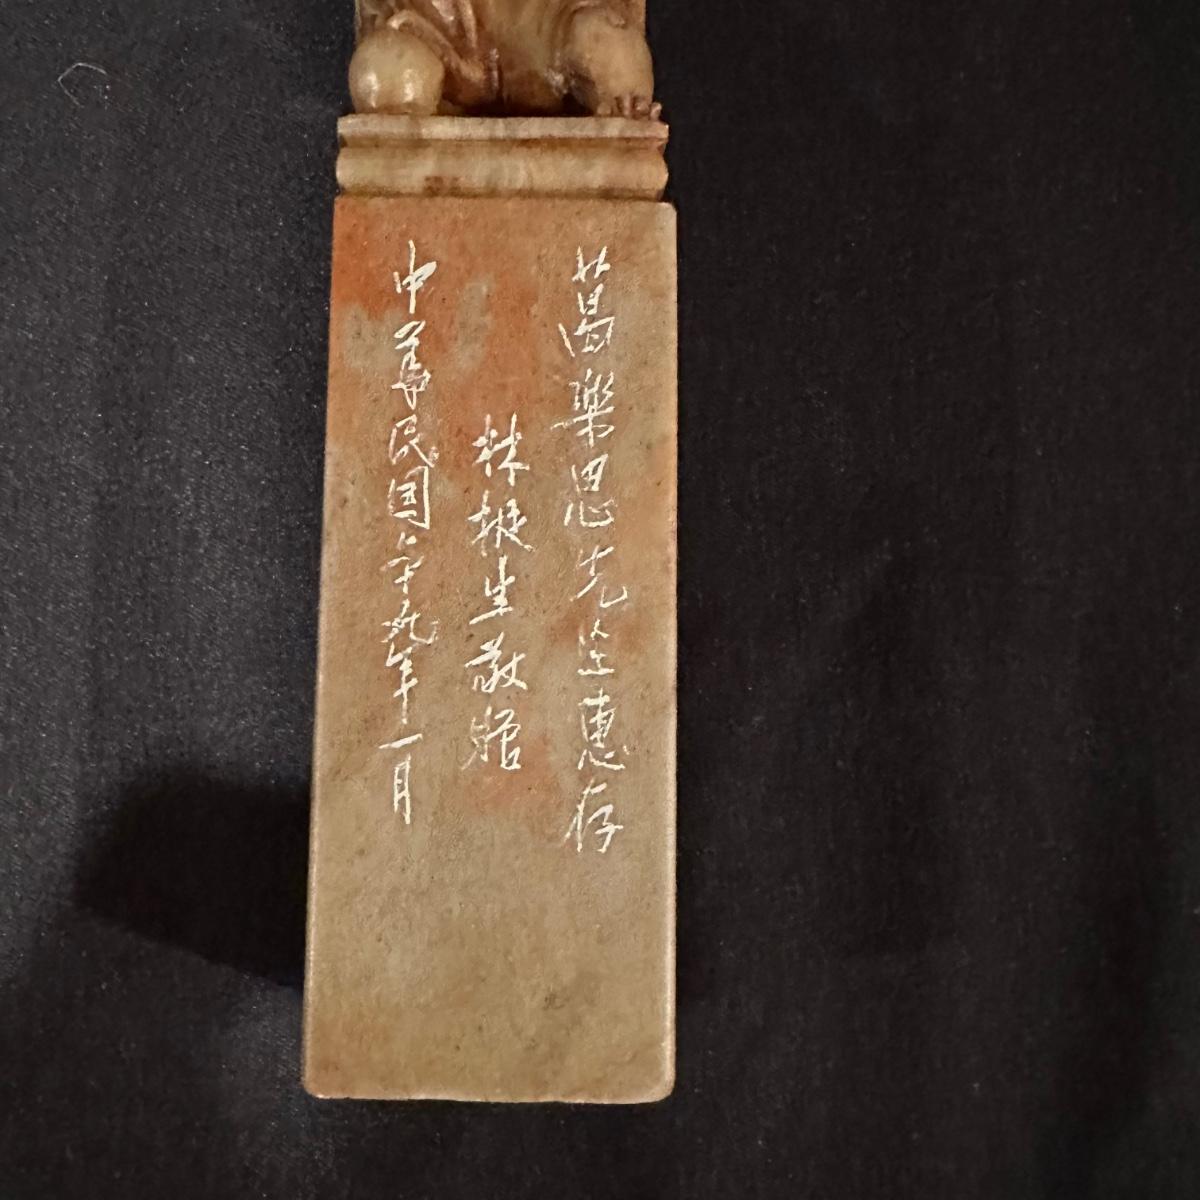 葛樂思先生惠存
林挺生敬贈
中華民国六十九年一月